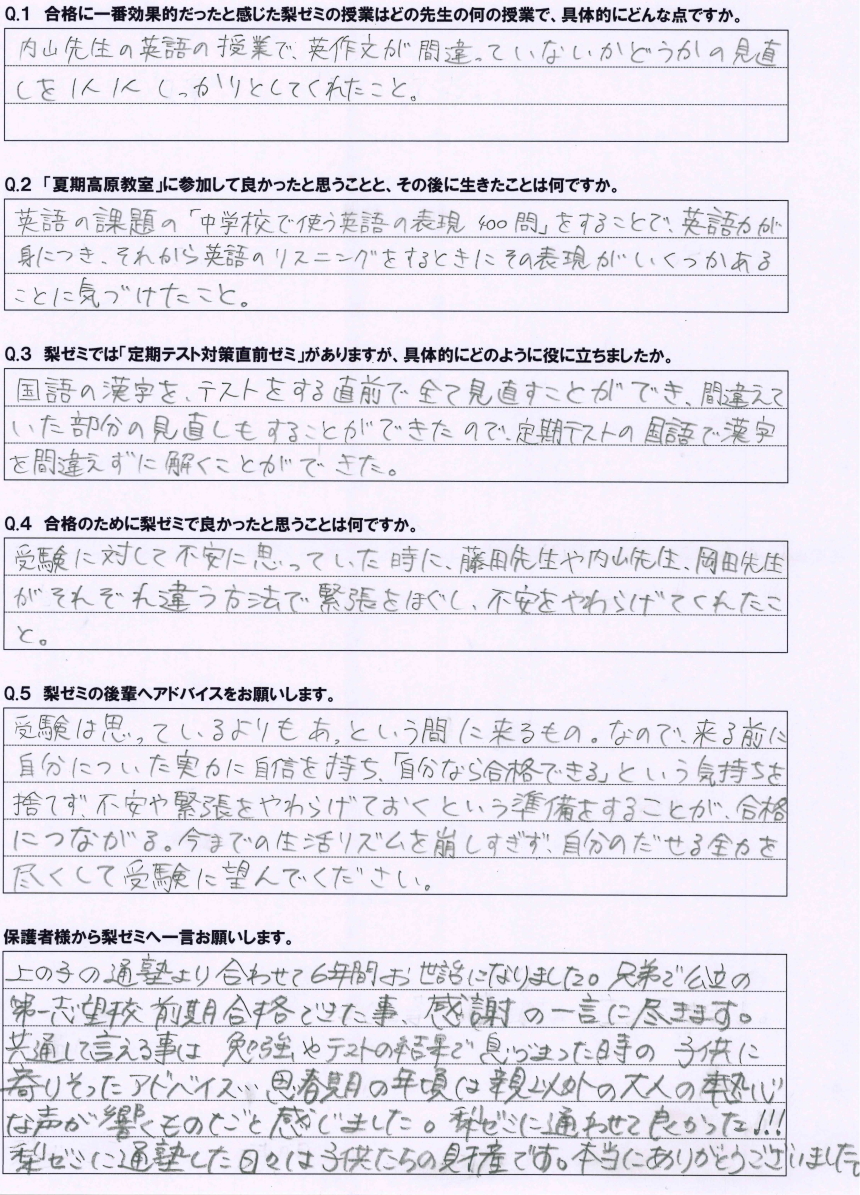 Q.1 合格に一番効果的だったと感じた梨ゼミの授業はどの先生の何の授業で、具体的にどんな点ですか。
内山先生の英語の授業で、英作文が間違っていないかどうかの見直
しを1人1人しっかりとしてくれたこと。
Q.2 「夏期高原教室」に参加して良かったと思うことと、その後に生きたことは何ですか。
英語の課題の「中学校で使う英語の表現 400問」をすることで、英語力が
身につき、それから英語のリスニングをするときにその表現がいくつかある
ことに気づけたこと。
Q.3 梨ゼミでは「定期テスト対策直前ゼミ」がありますが、具体的にどのように役に立ちましたか。
国語の漢字を、テストをする直前で全て見直すことができ、間違えて
いた部分の見直しもすることができたので、定期テストの国語で漢字
を間違えずに解くことができた。
Q.4 合格のために梨ゼミで良かったと思うことは何ですか。
受験に対して不安に思っていた時に、藤田先生や内山先生、岡田先生
がそれぞれ違う方法で緊張をほぐし、不安をやわらげてくれたこ
と。
Q.5 梨ゼミの後輩へアドバイスをお願いします。
受験は思っているよりもあっという間に来るもの。なので、来る前に
自分についた実力に自信を持ち、「自分なら合格できる」という気持ちを
捨てず、不安や緊張をやわらげておくという準備をすることが、合格
につながる。今までの生活リズムを崩しすぎず、自分のだせる全力を
尽くして受験に望んでください。
保護者様から梨ゼミへ一言お願いします。
上の子の通塾より合わせて6年間お世話になりました。兄弟で公立の
第一志望校前期合格できた事、感謝の一言に尽きます。
共通して言える事は 勉強やテストの結果で息づまった時の 子供に
寄りそったアドバイス… 思春期の年頃は親以外の大人の熱心
な声が響くものだと感じました。梨ゼミに通わせて良かった!!!
梨ゼミに通塾した日々は子供たちの財産です。本当にありがとうございました。